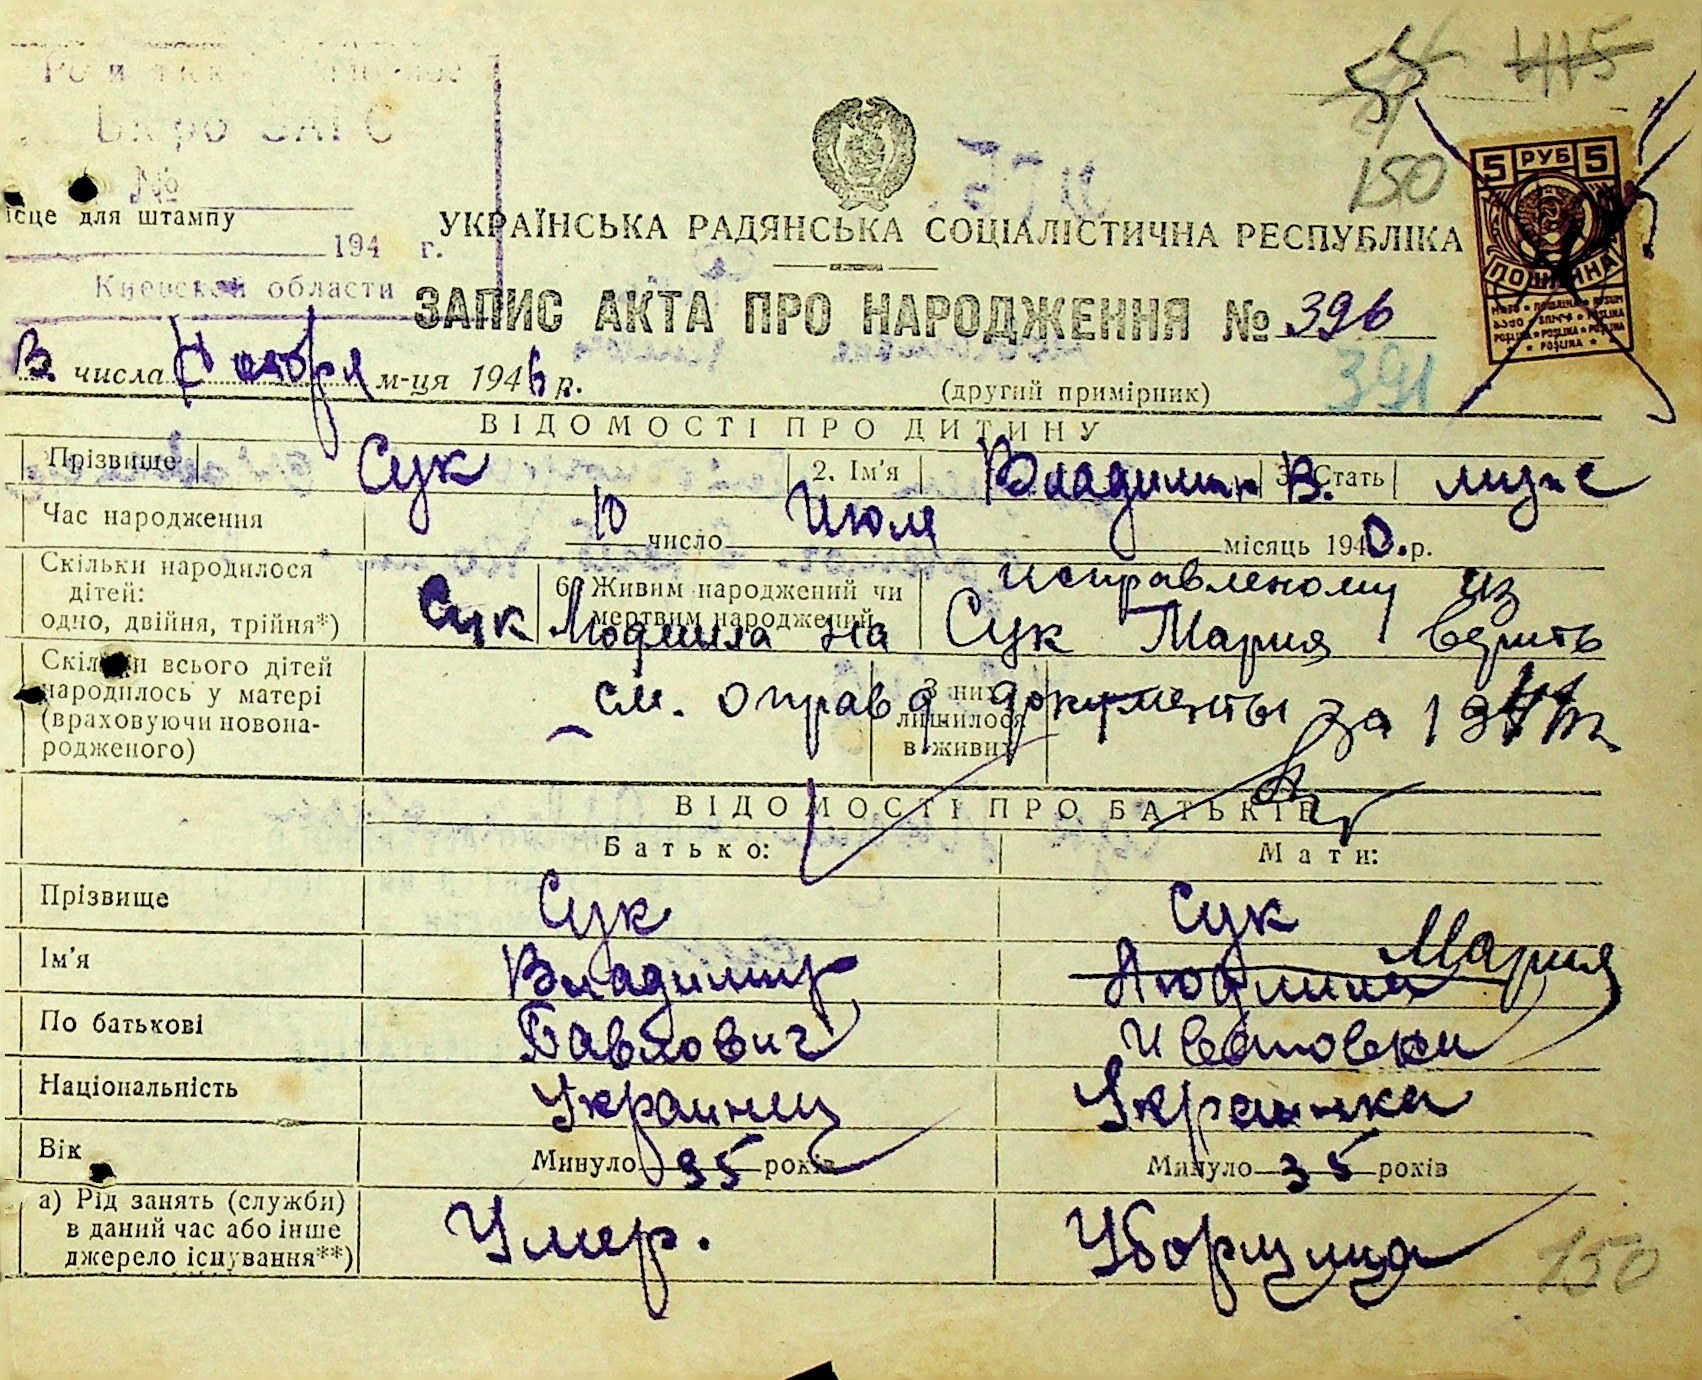 Бюро ЗАГС
№
ісце для штампу
194 г.
Киевской области
55 415
150
5 РУБ 5
УКРАЇНСЬКА РАДЯНСЬКА СОЦІАЛІСТИЧНА РЕСПУБЛІКА
ЗАПИС АКТА ПРО НАРОДЖЕННЯ № 396
числа Ноября м-ця 1946 р.
(другий примірник) 391
ВІДОМОСТІ ПРО ДИТИНУ
Прізвище Сук 2. Ім'я Владимир В. 3. Стать муж
Час народження 10 число Июля місяць 1940. р.
Скільки народилося дітей: одно, двійня, трійня*)
6. Живим народжений чи мертвим народжений
исправленому из
Сук Людмила на Сук Мария верить
Скільки всього дітей народилось у матері (враховуючи новонародженого)
З них лишилося в живих
см. оправд документы за 19
ВІДОМОСТІ ПРО БАТЬКІВ
Батько: Мати:
Прізвище Сук Сук
Ім'я Владимир Людмила Мария
По батькові Павлович Ивановна
Національність Украинец Украинка
Вік Минуло 35 років Минуло 35 років
а) Рід занять (служби) в даний час або інше джерело існування**) Умер. Уборщица
150